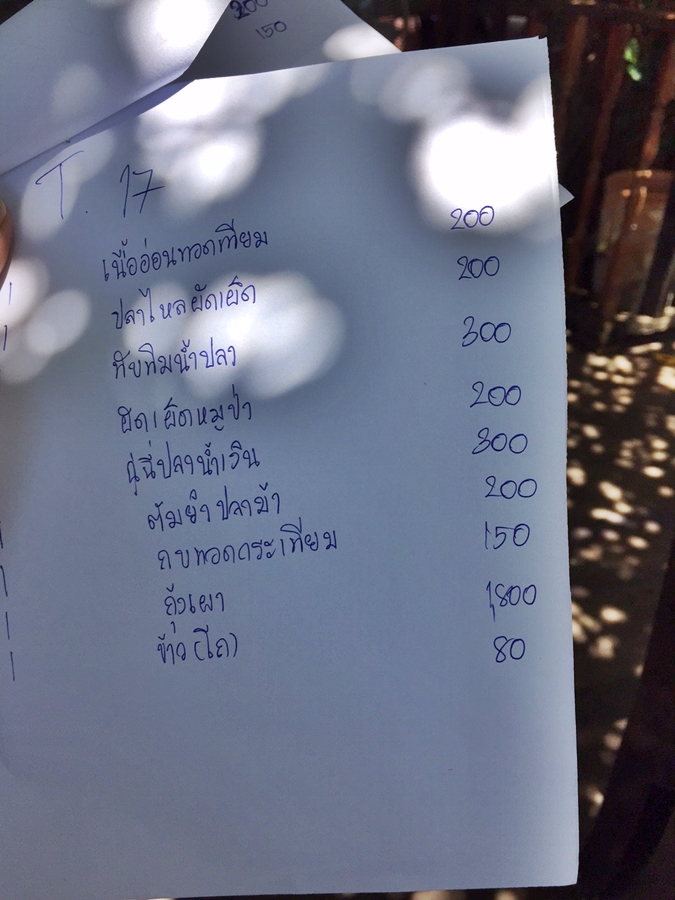 200
150
T. 17
เนื้ออ่อนทอดเทียม 200
ปลาไหลผัดเผ็ด 200
ทับทิมน้ำปลา 300
ผัดเผ็ดหมูป่า 200
ฉู่ฉี่ปลาน้ำเงิน 300
ต้มยำปลาม้า 200
กบทอดกระเทียม 150
กุ้งเผา 1,800
ข้าว(โถ) 80